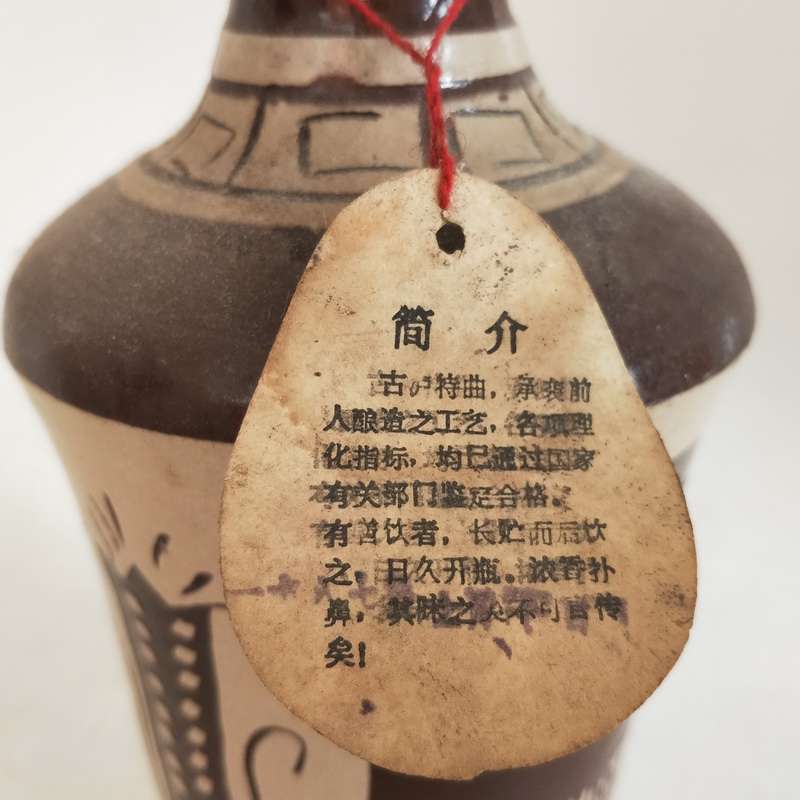 简 介
古 特曲,承袭前
人酿造之工艺,各项理
化指标,均已通过国家
有关部门鉴定合格。
有善饮者,长贮而后饮
之,日久开瓶。浓香扑
鼻,其味之美不可言传
矣!